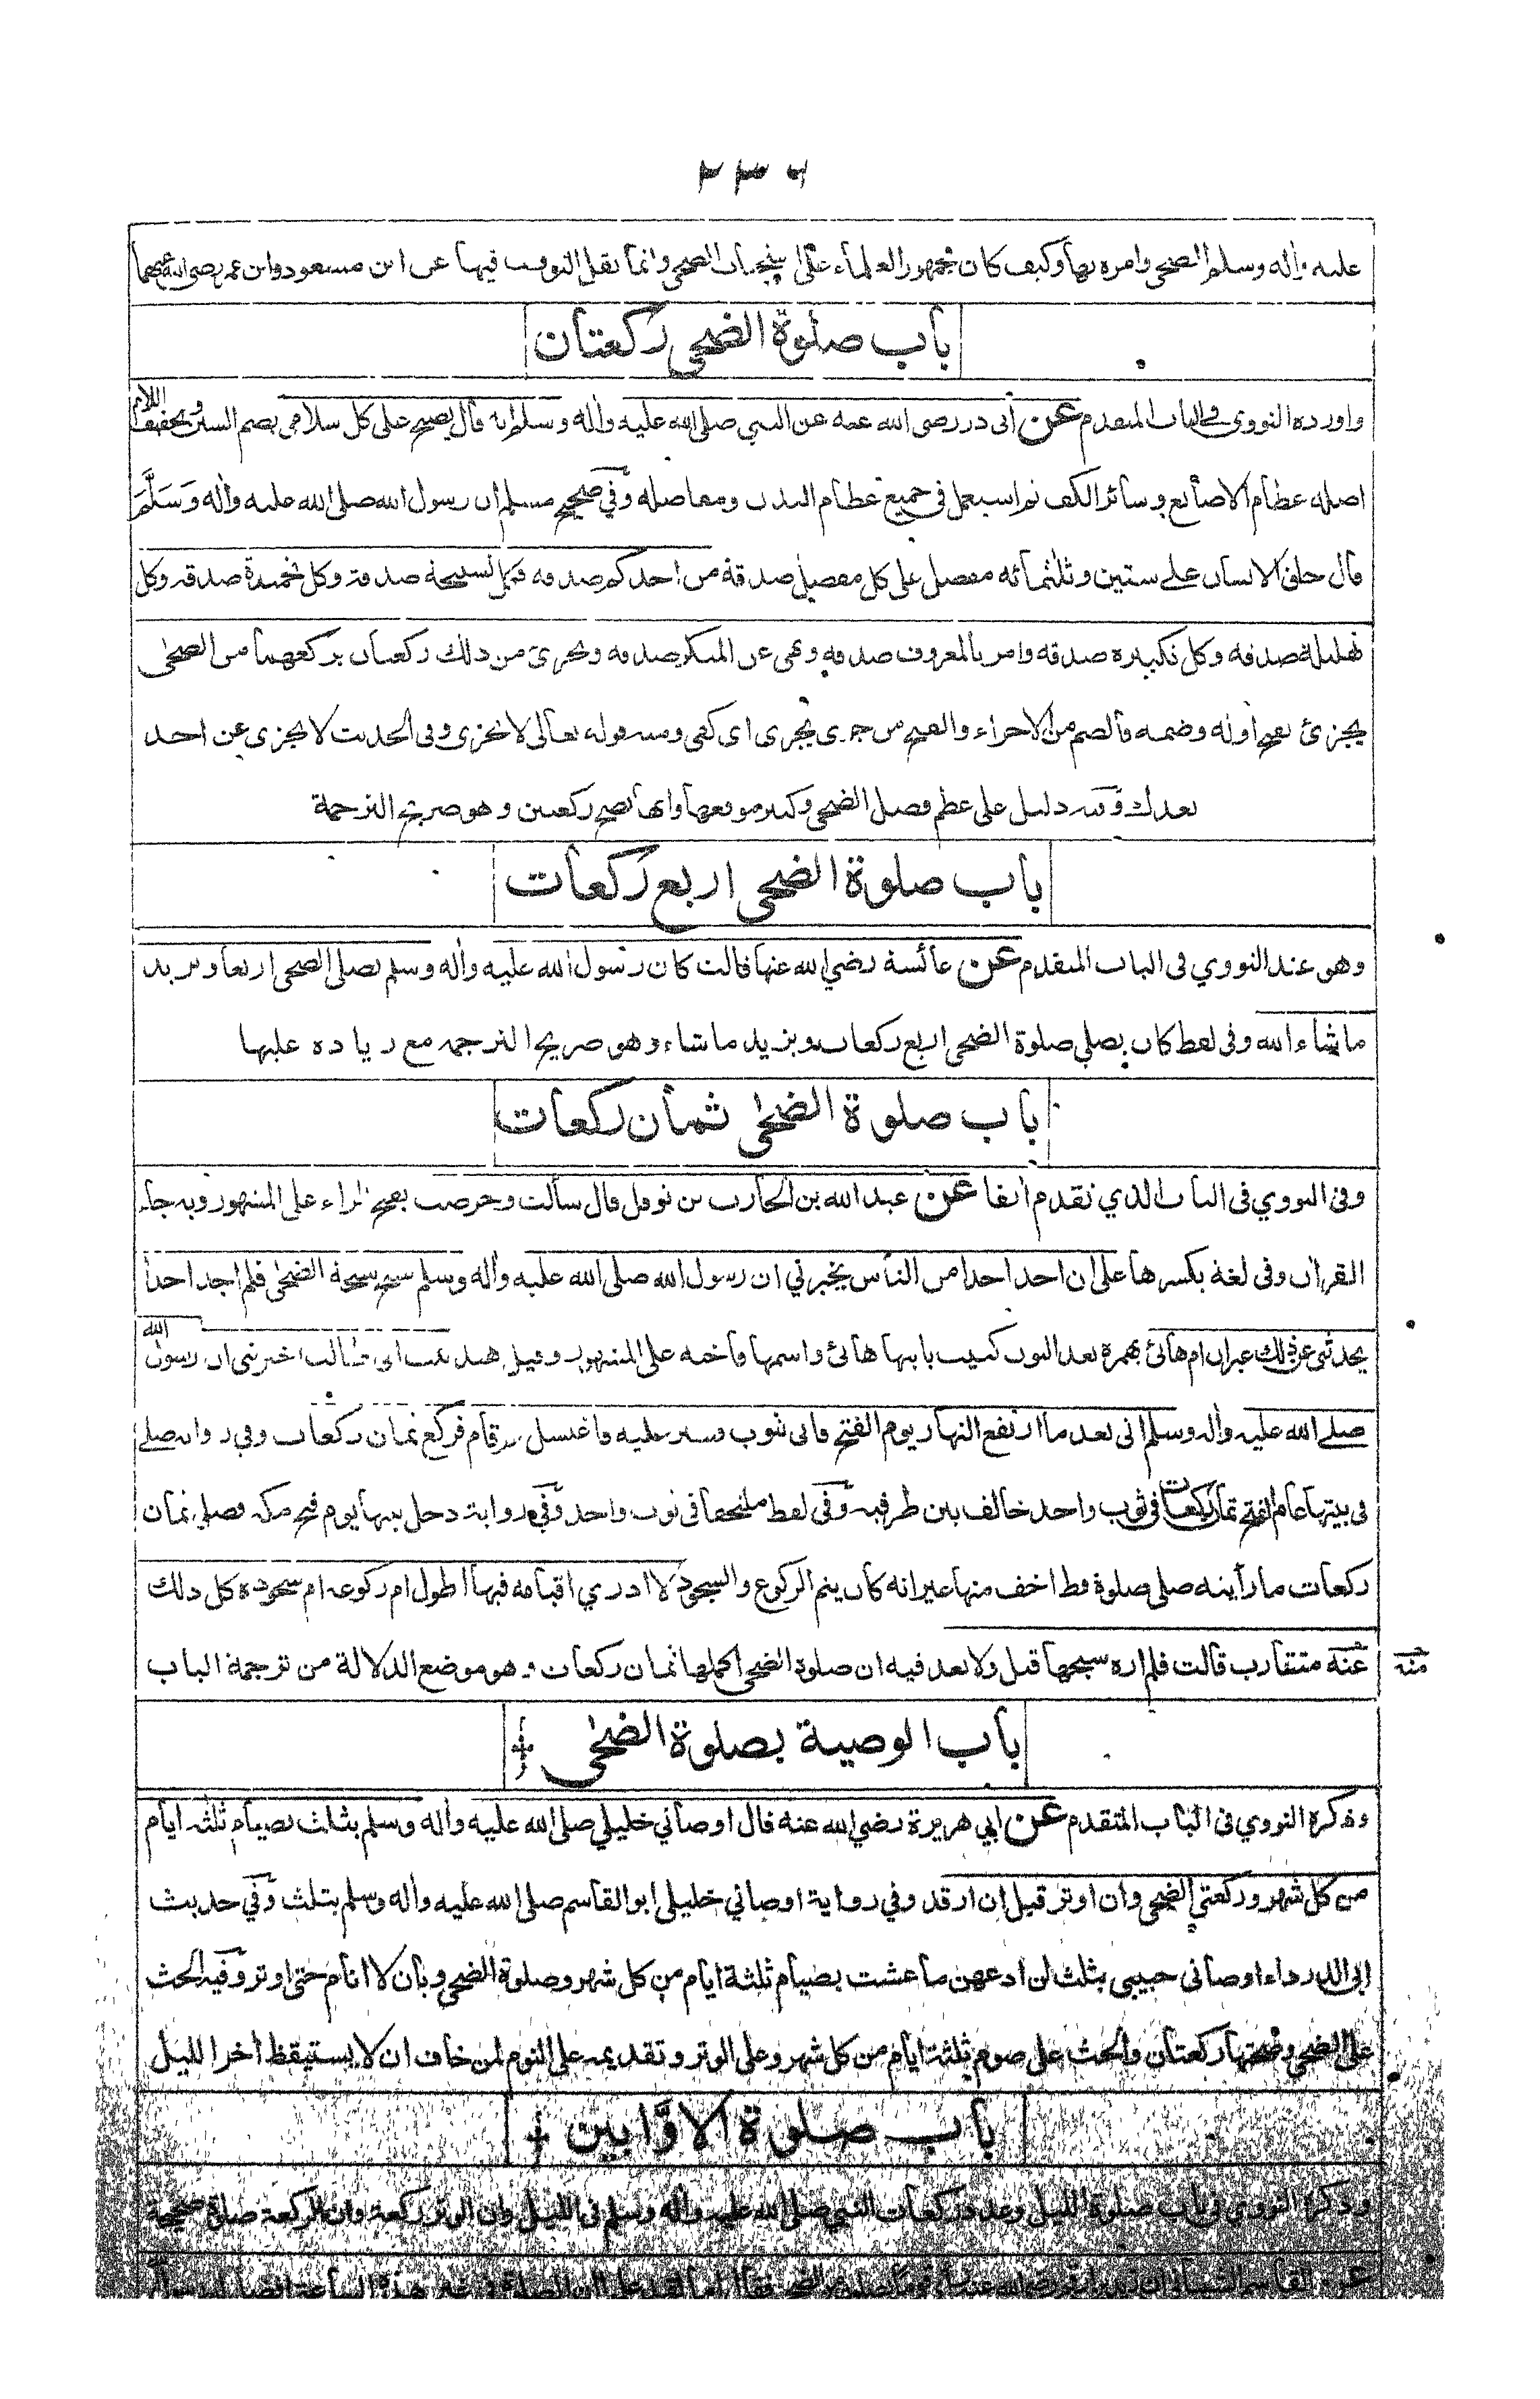 ٢٣٦
عليه واٰله وسلم الضحى وامره بها وكيف كان فجمهور العلماء على استحباب الضحى وانما نقل التوقف فيها عن ابن مسعود وابن عمر رضي الله عنهما
باب صلوة الضحى ركعتان
واورده النووي في الباب المتقدم عن أبى ذر رضى الله عنه عن النبي صلى الله عليه واٰله وسلم انه قال يصبح على كل سلامى بضم السين وتخفيف اللام
اصله عظام الاصابع وسائر الكف ثم استعمل فى جميع عظام البدن ومفاصله وفي صحيح مسلم ان رسول الله صلى الله عليه واٰله وَسَلَّمَ
قال خلق الانسان على ستين وثلثمائه مفصل على كل مفصل صدقة من احدكم صدقه فكل تسبيحة صدقة وكل تحميدة صدقه وكل
تهليلة صدقه وكل تكبيره صدقه وامر بالمعروف صدقه ونهى عن المنكر صدقه ويجزئ من ذلك ركعتان يركعهما من الضحى
يجزئ بفتح اوله وضمه فالضم من الاجزاء والفتح من جزى يجزى اى كفى ومنه قوله تعالى لا تجزى وفى الحديث لا يجزى عن احد
بعدك وفيه دليل على عظم فضل الضحى وكبير موقعها وانها تصح ركعتين وهو صريح الترجمة
باب صلوة الضحى اربع ركعات
وهو عند النووي فى الباب المتقدم عن عائشة رضي الله عنها قالت كان رسول الله عليه واٰله وسلم يصلى الضحى اربعا ويزيد
ما شاء الله وفى لفظ كان يصلي صلوة الضحى اربع ركعات ويزيد ما شاء وهو صريح الترجمه مع زياده عليها
باب صلوة الضحىٰ ثمان ركعات
وفى النووي فى الباب الذي تقدم اٰنفا عن عبد الله بن الحارث بن نوفل قال سألت وحرصت بفتح الراء على المشهور وبه جاء
القراٰن وفى لغة بكسرها على ان اجد احدا من الناس يخبرني ان رسول الله صلى الله عليه واٰله وسلم سبح سبحة الضحىٰ فلم اجد احدا
يحدثنى عن ذلك غير ان ام هانئ بهمزة بعد النون كنيت بابنها هانئ واسمها فاخته على المشهور وقيل هند بنت ابى طالب اخبرتنى ان رسول الله
صلى الله عليه واٰله وسلم اتى بعد ما ارتفع النهار يوم الفتح فاتى بثوب وستر عليه فاغتسل ثم قام فركع ثمان ركعات وفي رواية صلى
فى بيتها عام الفتح ثمان ركعات فى ثوب واحد خالف بين طرفيه وفى لفظ ملتحفا فى ثوب واحد وفي رواية دخل بيتها يوم فتح مكه فصلى ثمان
ركعات ما رأيته صلى صلوة قط اخف منها غير انه كان يتم الركوع والسجود لا ادري اقيامه فيها اطول ام ركوعه ام سجوده كل ذلك
عنه متقارب قالت فلم اره سبحها قبل ولا بعد فيه ان صلوة الضحى اكملها ثمان ركعات وهو موضع الدلالة من ترجمة الباب
منه
باب الوصية بصلوة الضحىٰ
وذكره النووي فى الباب المتقدم عن ابي هريرة رضي الله عنه قال اوصاني خليلي صلى الله عليه واٰله وسلم بثلث بصيام ثلثه ايام
من كل شهر وركعتي الضحى وان اوتر قبل ان ارقد وفي رواية اوصاني خليلى ابو القاسم صلى الله عليه واٰله وسلم بثلث وفي حديث
ابى الدرداء اوصانى حبيبى بثلث لن ادعهن ما عشت بصيام ثلثة ايام من كل شهر وصلوة الضحى وبان لا انام حتى اوتر وفيه الحث
على الضحى وصحتها ركعتان والحث على صوم ثلثة ايام من كل شهر وعلى الوتر وتقديمه على النوم لمن خاف ان لا يستيقظ اٰخر الليل
باب صلوة الاوَّابين
وذكره النووى فى باب صلوة الليل وعدد ركعات النبي صلى الله عليه واٰله وسلم فى الليل وان الوتر ركعة وان الركعة صلوة صحيحة
عن القاسم الشيبانى ان زيد بن ارقم رضى الله عنه رأى قوما يصلون من الضحى فقال اما لقد علموا ان الصلوة فى غير هذه الساعة افضل ان رسول